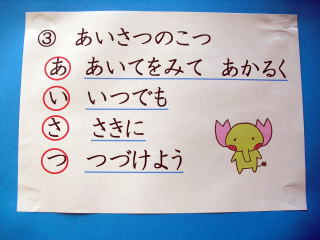 ③ あいさつのこつ
あ あいてをみて あかるく
い いつでも
さ さきに
つ つづけよう